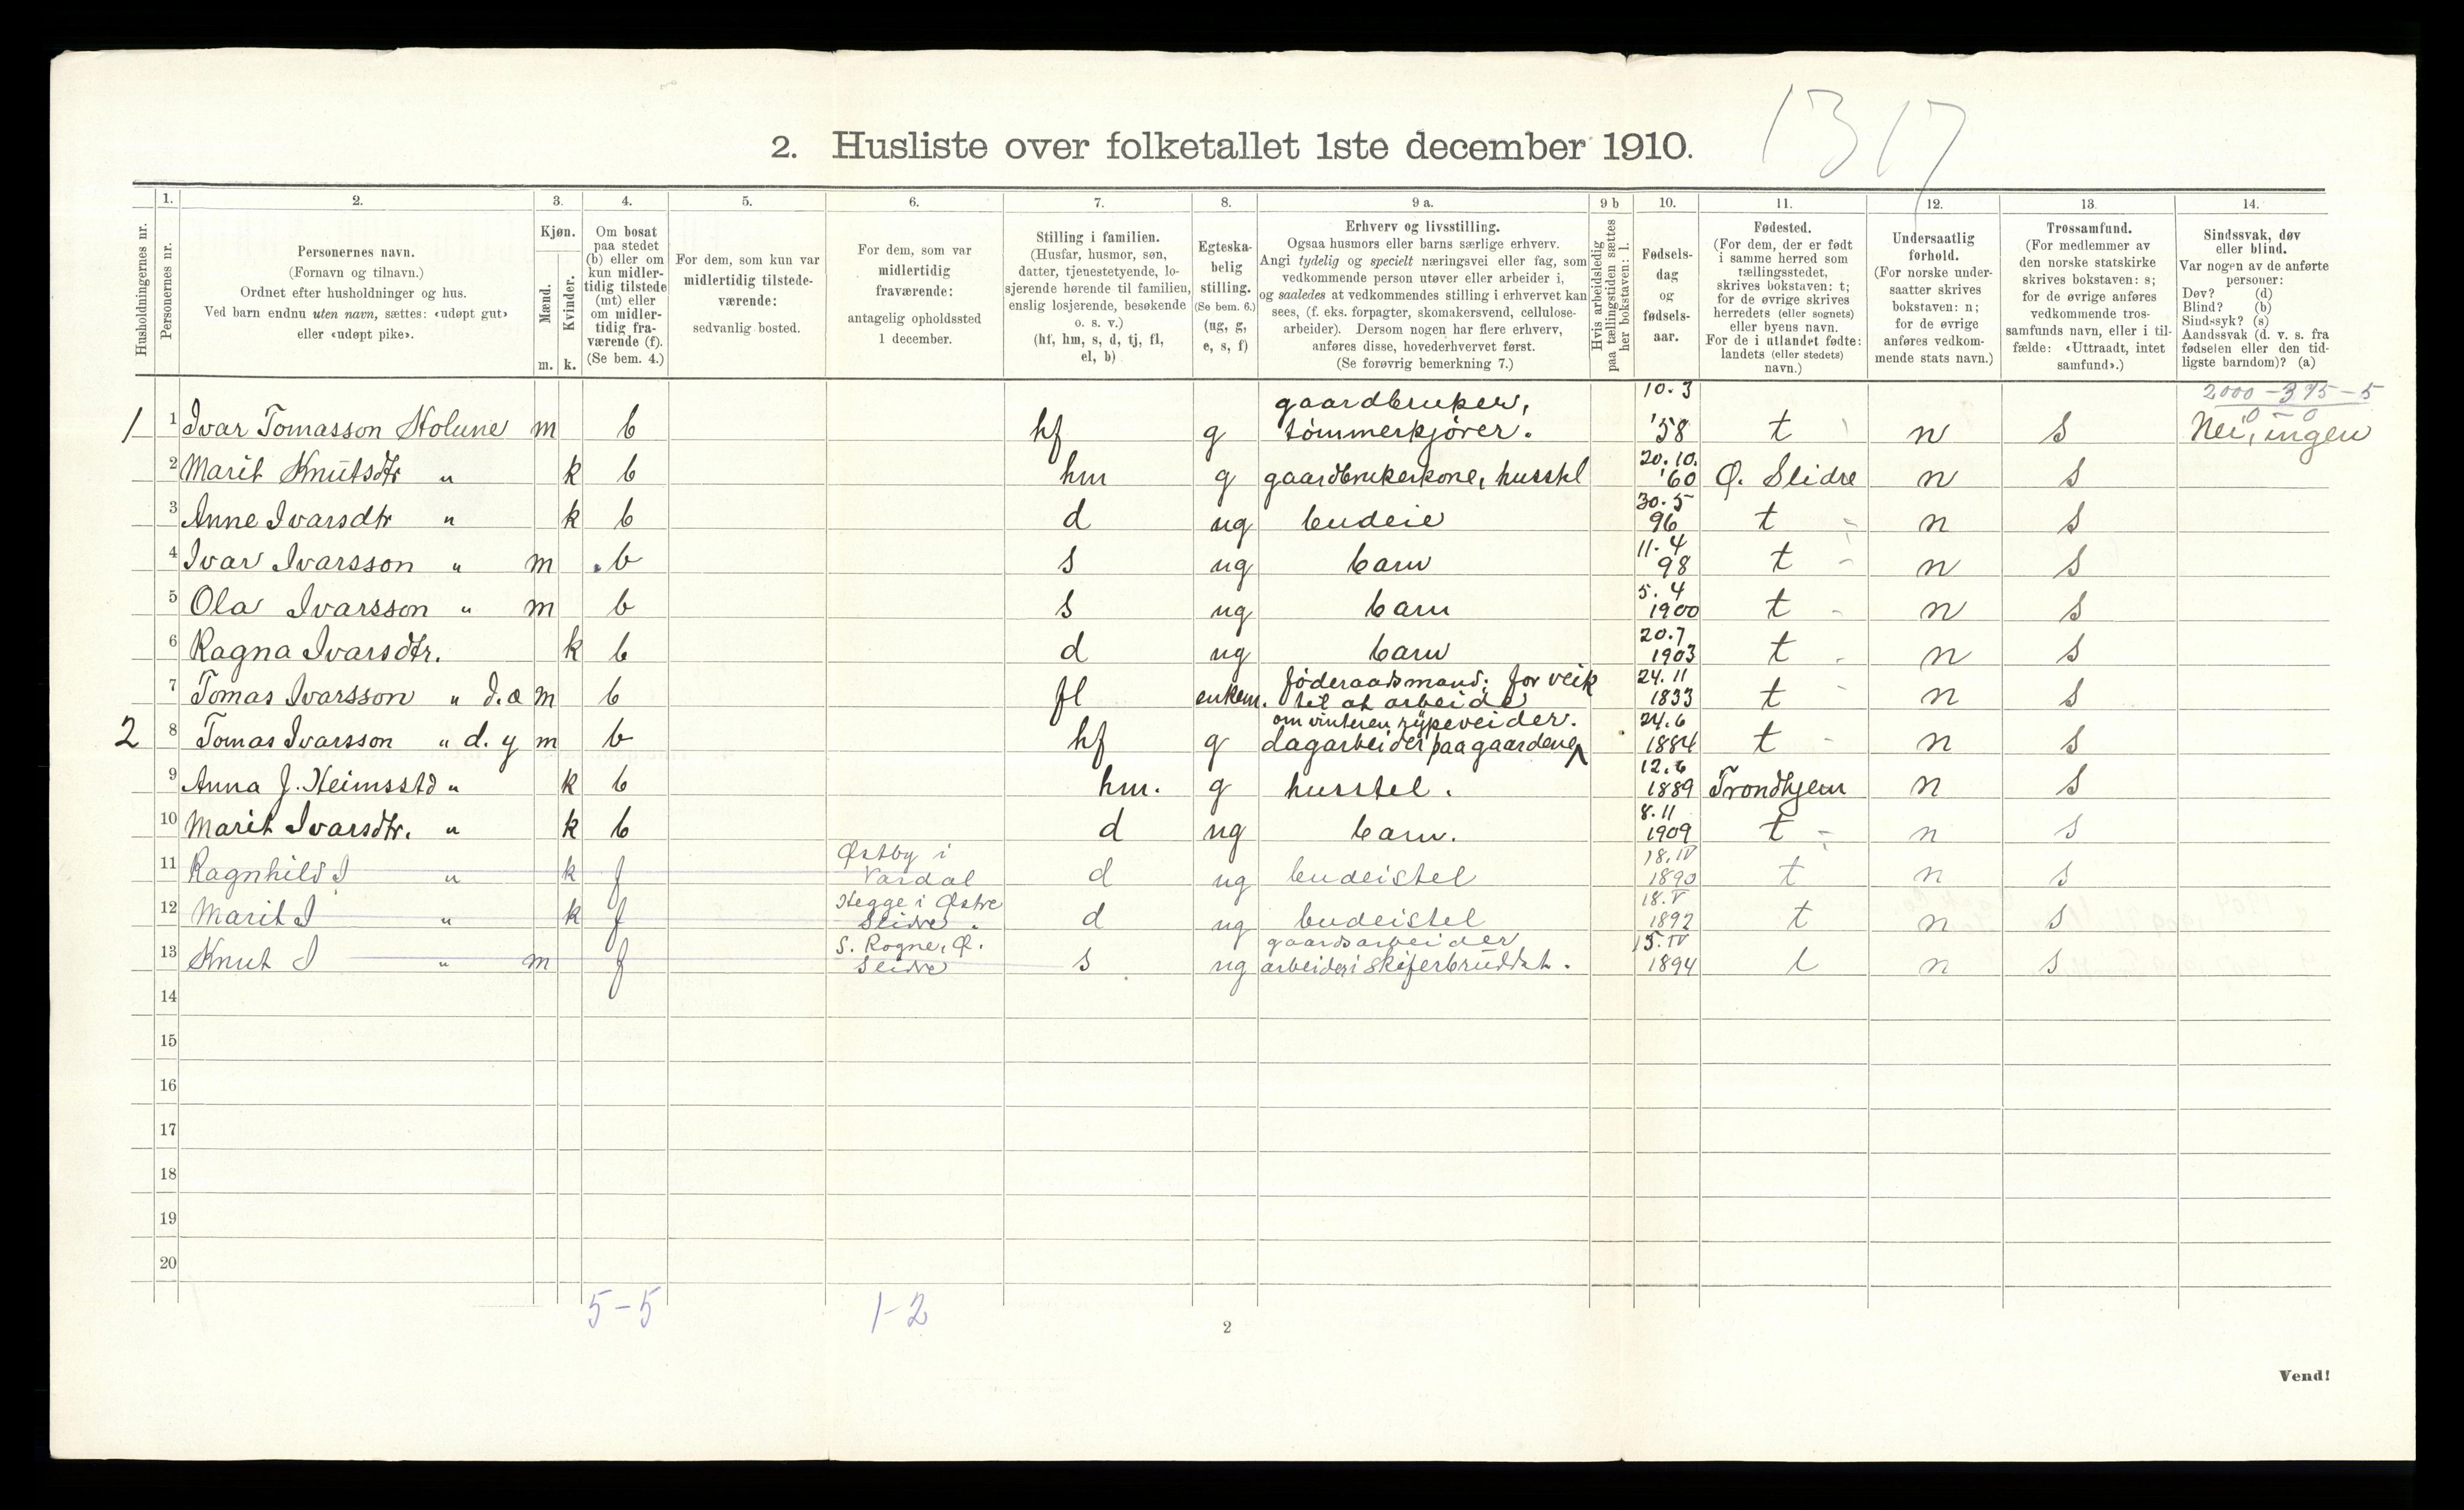 1317
2. Husliste over folketallet 1ste december 1910.
Husholdningernes nr.
1.
Personernes nr.
2.
Personernes navn.
(Fornavn og tilnavn.)
Ordnet efter husholdninger og hus.
Ved barn endnu uten navn, sættes: «udøpt gut»
eller «udøpt pike».
3.
Kjøn.
Mænd.
Kvinder.
m. k.
4.
Om bosat
paa stedet
(b) eller om
kun midler-
tidig tilstede
(mt) eller
om midler-
tidig fra-
værende (f).
(Se bem. 4.)
5.
For dem, som kun var
midlertidig tilstede-
værende:
sedvanlig bosted.
6.
For dem, som var
midlertidig
fraværende:
antagelig opholdssted
1 december.
7.
Stilling i familien.
(Husfar, husmor, søn,
datter, tjenestetyende, lo-
sjerende hørende til familien,
enslig losjerende, besøkende
o. s. v.)
(hf, hm, s, d, tj, fl,
el, b)
8.
Egteska-
belig
stilling.
(Se bem. 6.)
(ug, g,
e, s, f)
9 a.
Erhverv og livsstilling.
Ogsaa husmors eller barns særlige erhverv.
Angi tydelig og specielt næringsvei eller fag, som
vedkommende person utøver eller arbeider i,
og saaledes at vedkommendes stilling i erhvervet kan
sees, (f. eks. forpagter, skomakersvend, cellulose-
arbeider). Dersom nogen har flere erhverv,
anføres disse, hovederhvervet først.
(Se forøvrig bemerkning 7.)
9 b
Hvis arbeidsledig
paa tællingstiden sættes
her bokstaven: l.
10.
Fødsels-
dag
og
fødsels-
aar.
11.
Fødested.
(For dem, der er født
i samme herred som
tællingsstedet,
skrives bokstaven: t;
for de øvrige skrives
herredets (eller sognets)
eller byens navn.
For de i utlandet fødte:
landets (eller stedets)
navn.)
12.
Undersaatlig
forhold.
(For norske under-
saatter skrives
bokstaven: n;
for de øvrige
anføres vedkom-
mende stats navn.)
13.
Trossamfund.
(For medlemmer av
den norske statskirke
skrives bokstaven: s;
for de øvrige anføres
vedkommende tros-
samfunds navn, eller i til-
fælde: «Uttraadt, intet
samfund».)
14.
Sindssvak, døv
eller blind.
Var nogen av de anførte
personer:
Døv? (d)
Blind? (b)
Sindssyk? (s)
Aandssvak (d. v. s. fra
fødselen eller den tid-
ligste barndom)? (a)
2000 - 375 - 5
0 - 0
gaardbruker, 10. 3
1 1 Ivar Tomasson Holune m b hf g tømmerkjører. '58 t n s Nei, ingen
20. 10.
2 Marit Knutsdtr " k b hm g gaardbrukerkone, husstel '60 Ø. Slidre n s
30. 5
3 Anne Ivarsdtr " k b d ug budeie 96 t n s
11. 4
4 Ivar Ivarsson " m b s ug barn 98 t n s
5. 4
5 Ola Ivarsson " m b s ug barn 1900 t n s
20. 7
6 Ragna Ivarsdtr. k b d ug barn 1903 t n s
føderaadsmand; for veik 24. 11
7 Tomas Ivarsson " d. æ m b fl enkem. til at arbeide 1833 t n s
om vinteren rypeveider. 24. 6
2 8 Tomas Ivarsson " d. y m b hf g dagarbeider paa gaardene 1884 t n s
12. 6
9 Anna J. Heimsstd " k b hm. g husstel. 1889 Trondhjem n s
8. 11
10 Marit Ivarsdtr. " k b d ug barn. 1909 t n s
Østby i 18. IV
11 Ragnhild I " k f Vardal d ug budeistel 1890 t n s
Hegge i Østre 18. V
12 Marit I " k f Slidre. d ug budeistel 1892 t n s
S. Rogne, Ø. gaardsarbeider 15. IV
13 Knut I " m f Slidre s ug arbeider i skiferbruddet. 1894 t n s
14
15
16
17
18
19
20
5 - 5 1 - 2
2
Vend!